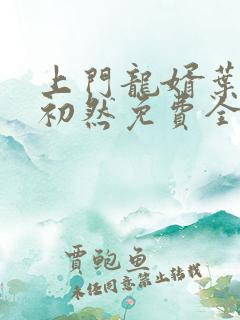 上門龍婿葉
初然免費全
賈鲍魚
未任同意禁止转载